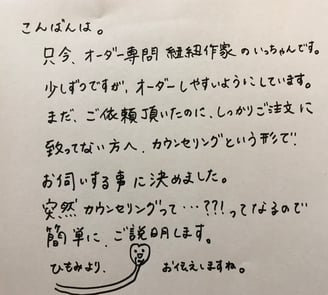 こんばんは。
只今、オーダー専門 紐紐作家 のいっちゃんです。
少しずつですが、オーダーしやすいようにしています。
まだ、ご依頼頂いたのに、しっかりご注文に
致ってない方へ、カウンセリングという形で、
お伺いする事に決めました。
突然 カウンセリングって…??!ってなるので
簡単に、ご説明します。
ひもみより、 お伝えしますね。